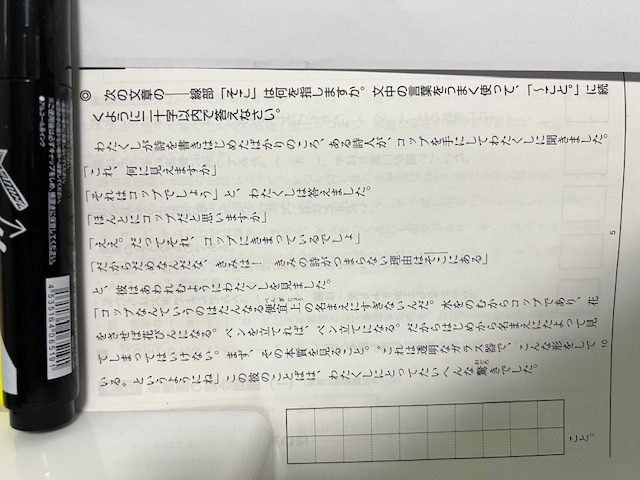 ◎ 次の文章の――線部「そこ」は何を指しますか。文中の言葉をうまく使って、「～こと。」に続
くように二十字以内で答えなさい。
わたくしが詩を書きはじめたばかりのころ、ある詩人が、コップを手にしてわたくしに聞きました。
「これ、何に見えますか」
「それはコップでしょう」と、わたくしは答えました。
「ほんとにコップだと思いますか」
「ええ。だってそれ、コップにきまっているでしょ」
「だからだめなんだな、きみは! きみの詩がつまらない理由はそこにある」
と、彼はあわれむようにわたくしを見ました。
「コップなんていうのはたんなる便宜上の名まえにすぎないんだ。水をのむからコップであり、花
をさせば花びんになる。ペンを立てれば、ペン立てになる。だからはじめから名まえにたよって見
てしまってはいけない。まず、その本質を見ること。“これは透明なガラス器で、こんな形をして
いる。というようにね」この彼のことばは、わたくしにとってたいへんな驚きでした。
べんぎじょう
おどろ
5
10
こと。
4535164065191